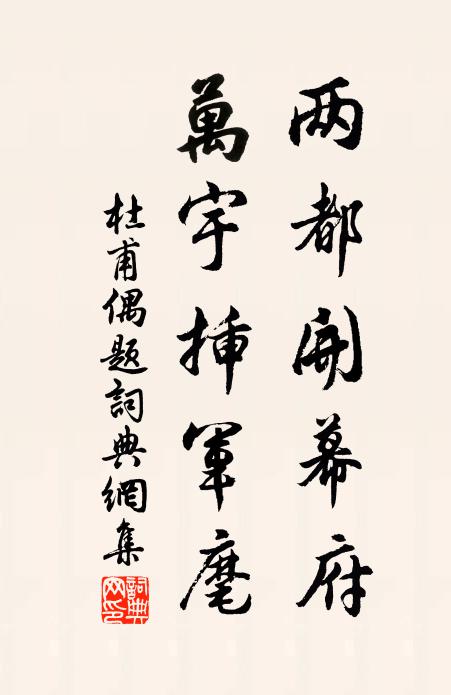 两都開幕府
萬宇插軍麾
杜甫偶題詞典網集
詞典网印